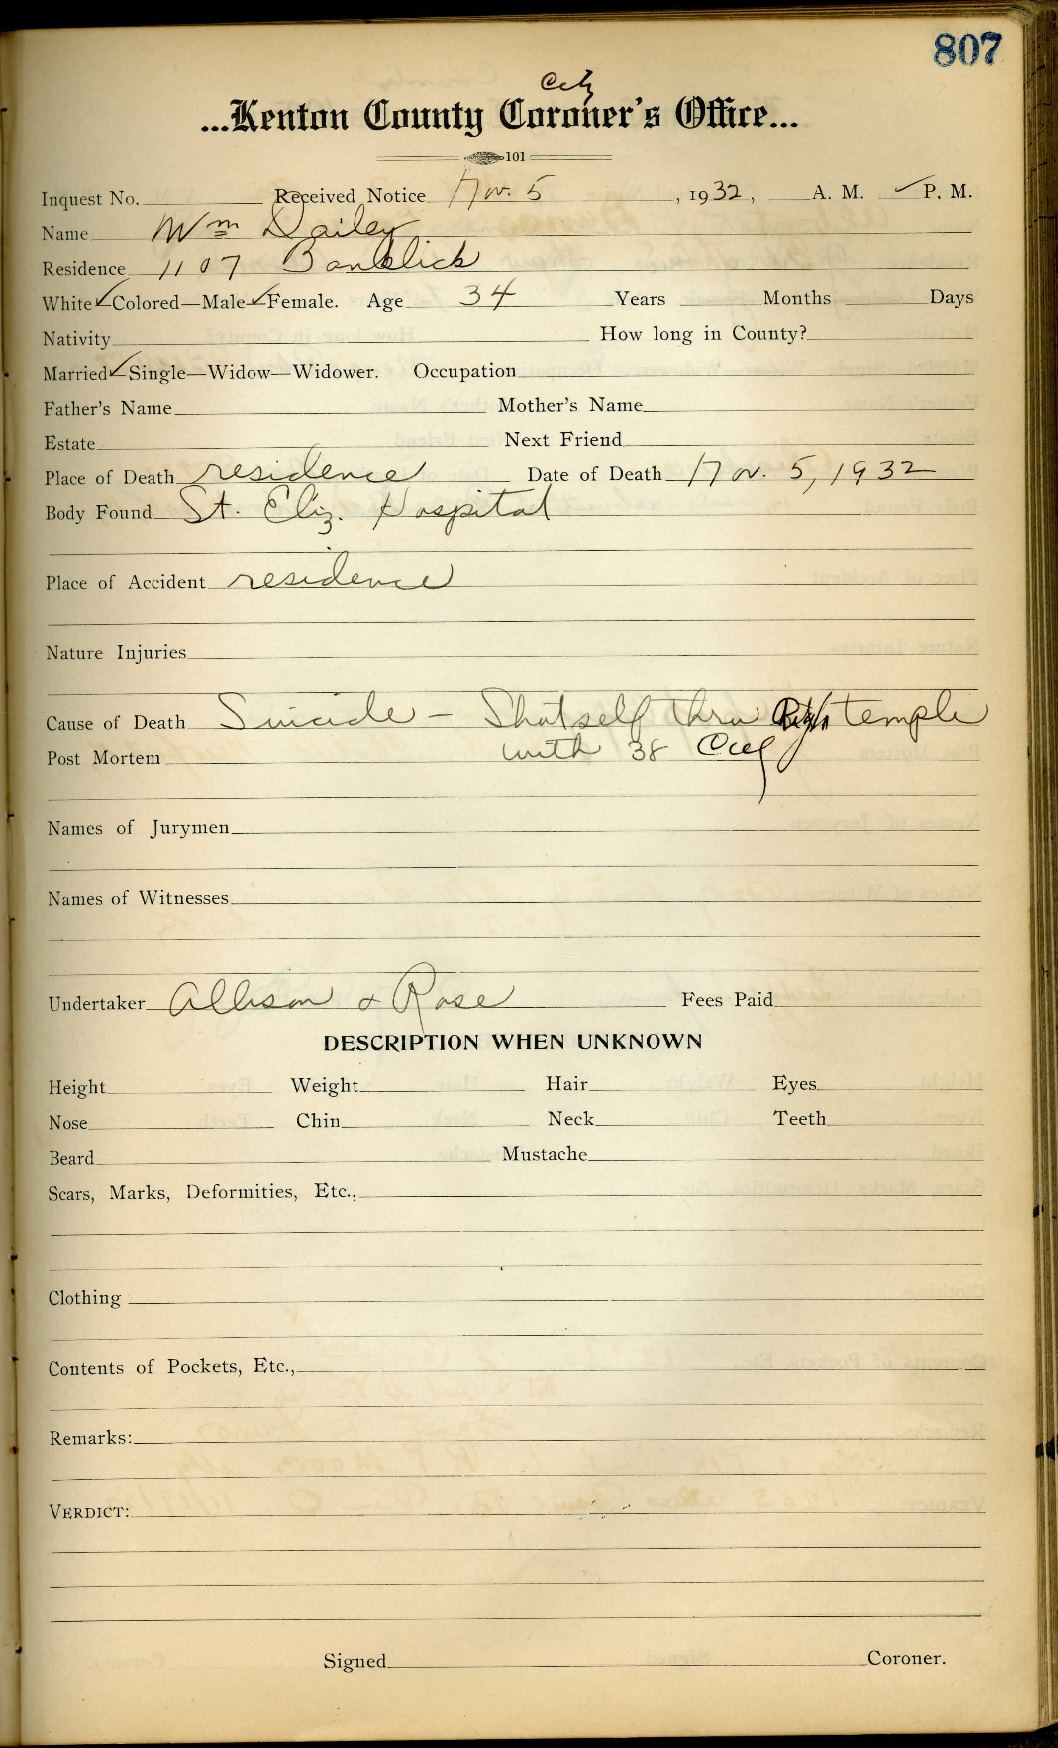 807
City
...Kenton County Coroner's Office...
101
Inquest No. Received Notice Nov. 5, 1932, A. M. ✓ P. M.
Name Wm Dailey
Residence 1107 Banklick
White ✓ Colored—Male ✓ Female. Age 34 Years Months Days
Nativity How long in County?
Married ✓ Single—Widow—Widower. Occupation
Father's Name Mother's Name
Estate Next Friend
Place of Death residence Date of Death Nov. 5, 1932
Body Found St. Eliz. Hospital
Place of Accident residence
Nature Injuries
Cause of Death Suicide – Shot self thru Right temple
Post Mortem with 38
Names of Jurymen
Names of Witnesses
Undertaker Allison & Rose Fees Paid
DESCRIPTION WHEN UNKNOWN
Height Weight Hair Eyes
Nose Chin Neck Teeth
Beard Mustache
Scars, Marks, Deformities, Etc.,
Clothing
Contents of Pockets, Etc.,
Remarks:
VERDICT:
Signed Coroner.